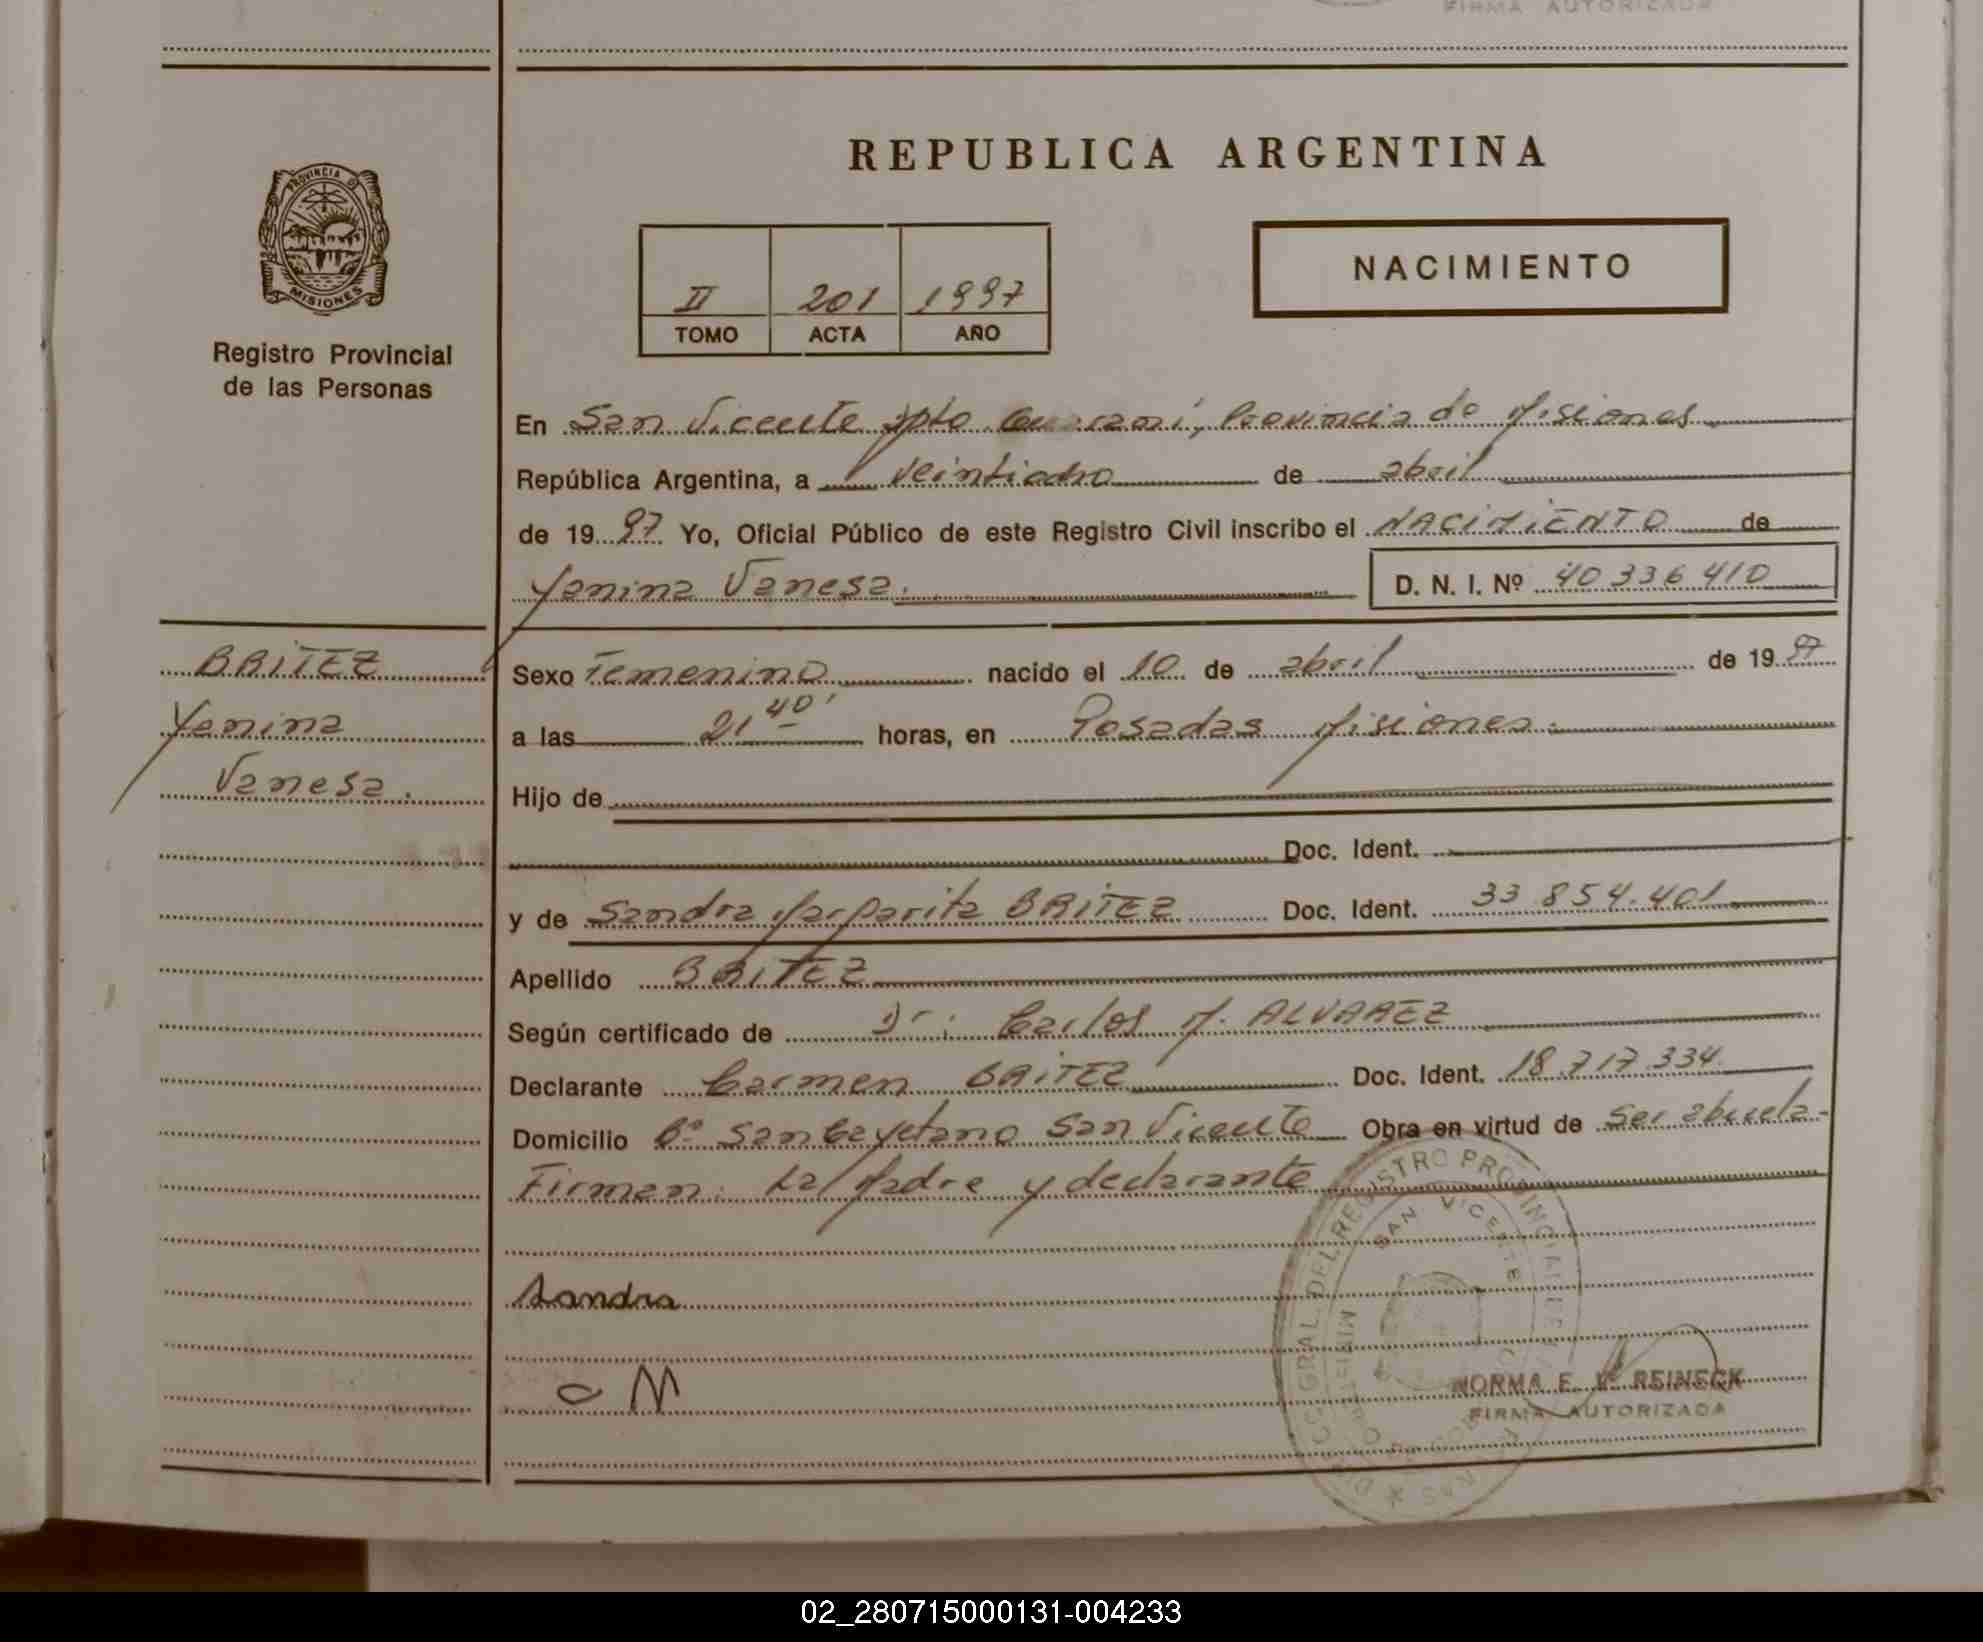 FIRMA AUTORIZADA
PROVINCIA DE
MISIONES
Registro Provincial
de las Personas
REPUBLICA ARGENTINA
II 201 1997
TOMO ACTA AÑO
NACIMIENTO
En San Vicente Dpto Guaraní, Provincia de Misiones
República Argentina, a veinticuatro de abril
de 1997 Yo, Oficial Público de este Registro Civil inscribo el NACIMIENTO de
Yanina Vanesa. D. N. I. Nº 40 336 410
BRITEZ
Yanina
Vanesa.
Sexo Femenino nacido el 10 de abril de 1997
a las 21 40' horas, en Posadas Misiones.
Hijo de
Doc. Ident.
y de Sandra Margarita BRITEZ Doc. Ident. 33 854.401
Apellido BRITEZ
Según certificado de Dr. Carlos M. ALVAREZ
Declarante Carmen BRITEZ Doc. Ident. 18.717.334
Domicilio Bº San Cayetano San Vicente Obra en virtud de ser abuela-
Firman: La Madre y declarante
Sandra
C M
DEL REGISTRO PROVINCIAL DE
SAN VICENTE
NORMA E. REINECK
FIRMA AUTORIZADA
02_280715000131-004233